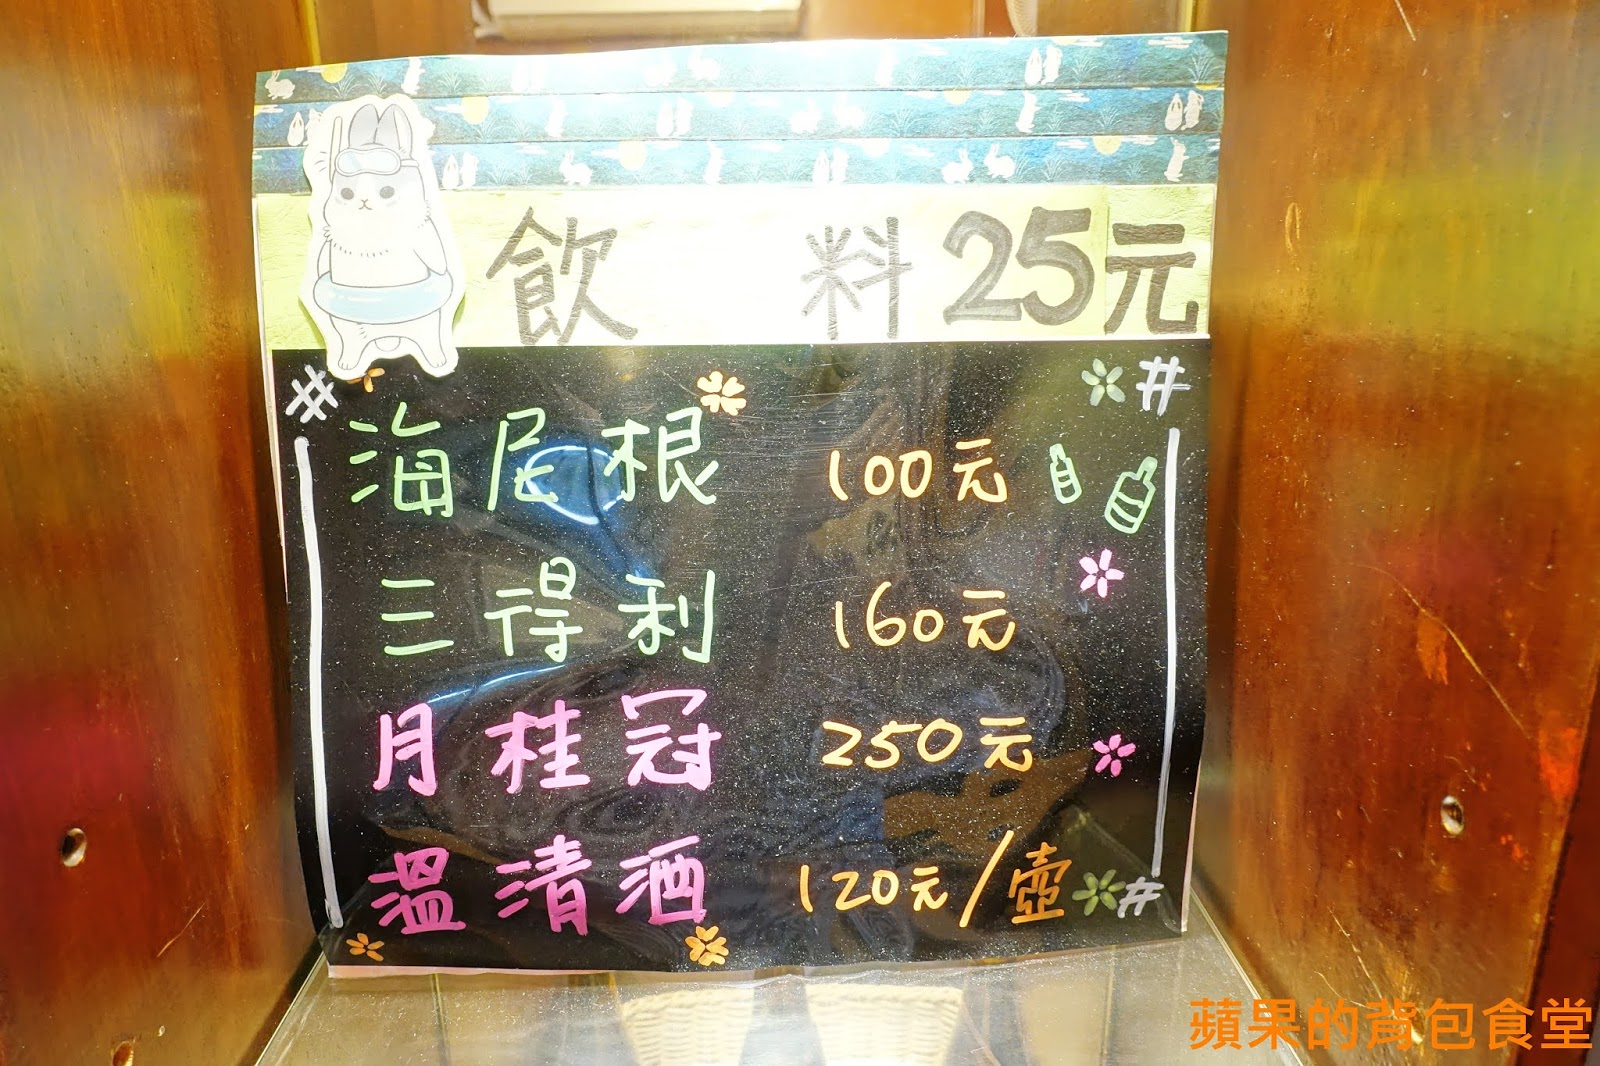 飲料25元
海尼根 100元
三得利 160元
月桂冠 250元
溫清酒 120元/壺
蘋果的背包食堂